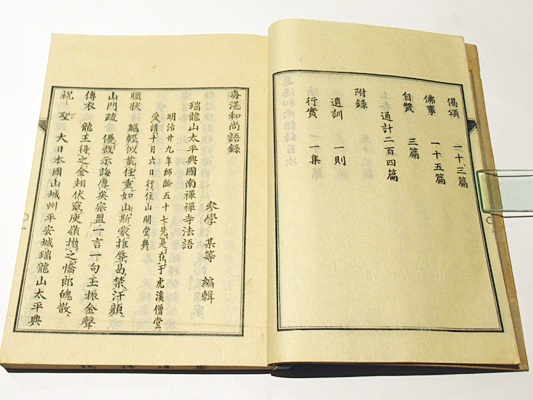 偈頌　一十三篇
佛事　一十五篇
自賛　三篇
上　通計二百四篇
附錄
遺訓　一則
行實　一集
毒湛和尚語錄
參學　某等　編輯
瑞龍山太平興國南禪禪寺法語
明治廿九年師齡五十七先是在于虎溪僧堂
受請十月六日行住山開堂典
職狀　鯤鯨似載任重如山斯蒙推擧曷禁汗顔
山門疏　優哉示誨傳奕宗盟一言一句玉振金聲
傳衣　龍王得之金翅伏竄庾嶺擲之慡郎魄散
祝聖　大日本國山城州平安城瑞龍山太平興